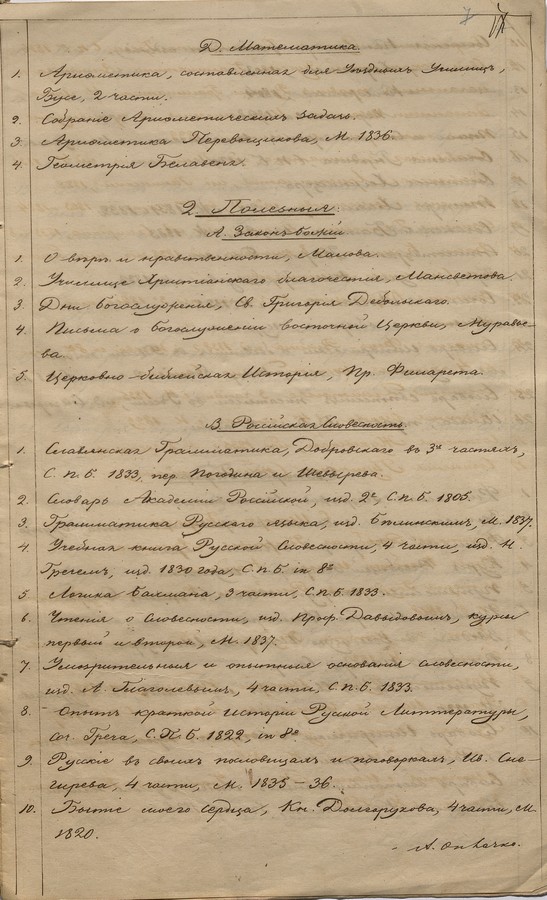 Д. Математика.
1. Ариѳметика, составленная для Уѣздныхъ Училищъ,
Буссе, 2 части.
2. Собраніе Ариѳметическихъ задачъ.
3. Ариѳметика Перевощикова, М. 1836.
4. Геометрія Беллавеня.
2. Полезныя.
А. Законъ Божій
1. О вѣрѣ и нравственности, Малова.
2. Училище Христіанскаго благочестія, Мансветова.
3. Дни богослуженія, Св. Григорія Дебольскаго.
4. Письма о богослуженіи восточной Церкви, Муравье-
ва.
5. Церковно-библейская Исторія, Пр. Филарета.
В. Россійская Словесность.
1. Славянская Грамматика, Добровскаго въ 3хъ частяхъ,
С. П. Б. 1833, пер. Погодина и Шевырева.
2. Словарь Академіи Россійской, изд. 2е, С. П. Б. 1805.
3. Грамматика Русскаго языка, изд. Бѣлинскимъ, М. 1837.
4. Учебная книга Русской Словесности, 4 части, изд. Н.
Гречемъ, изд. 1830 года, С. П. Б. in 8°
5. Логика Бахмана, 3 части, С. П. Б. 1833.
6. Чтенія о Словесности, изд. Проф. Давыдовымъ, курсы
первый и второй, М. 1837.
7. Умозрительныя и опытныя основанія словесности,
изд. А. Глаголевымъ, 4 части, С. П. Б. 1833.
8. Опытъ краткой исторіи Русской Литтературы,
Соч. Греча, С. П. Б. 1822, in 8°
9. Русскіе въ своихъ пословицахъ и поговоркахъ, Ив. Сне-
гирева, 4 части, М. 1835 – 36.
10. Бытіе моего сердца, Кн. Долгорукова, 4 части, М.
1820.